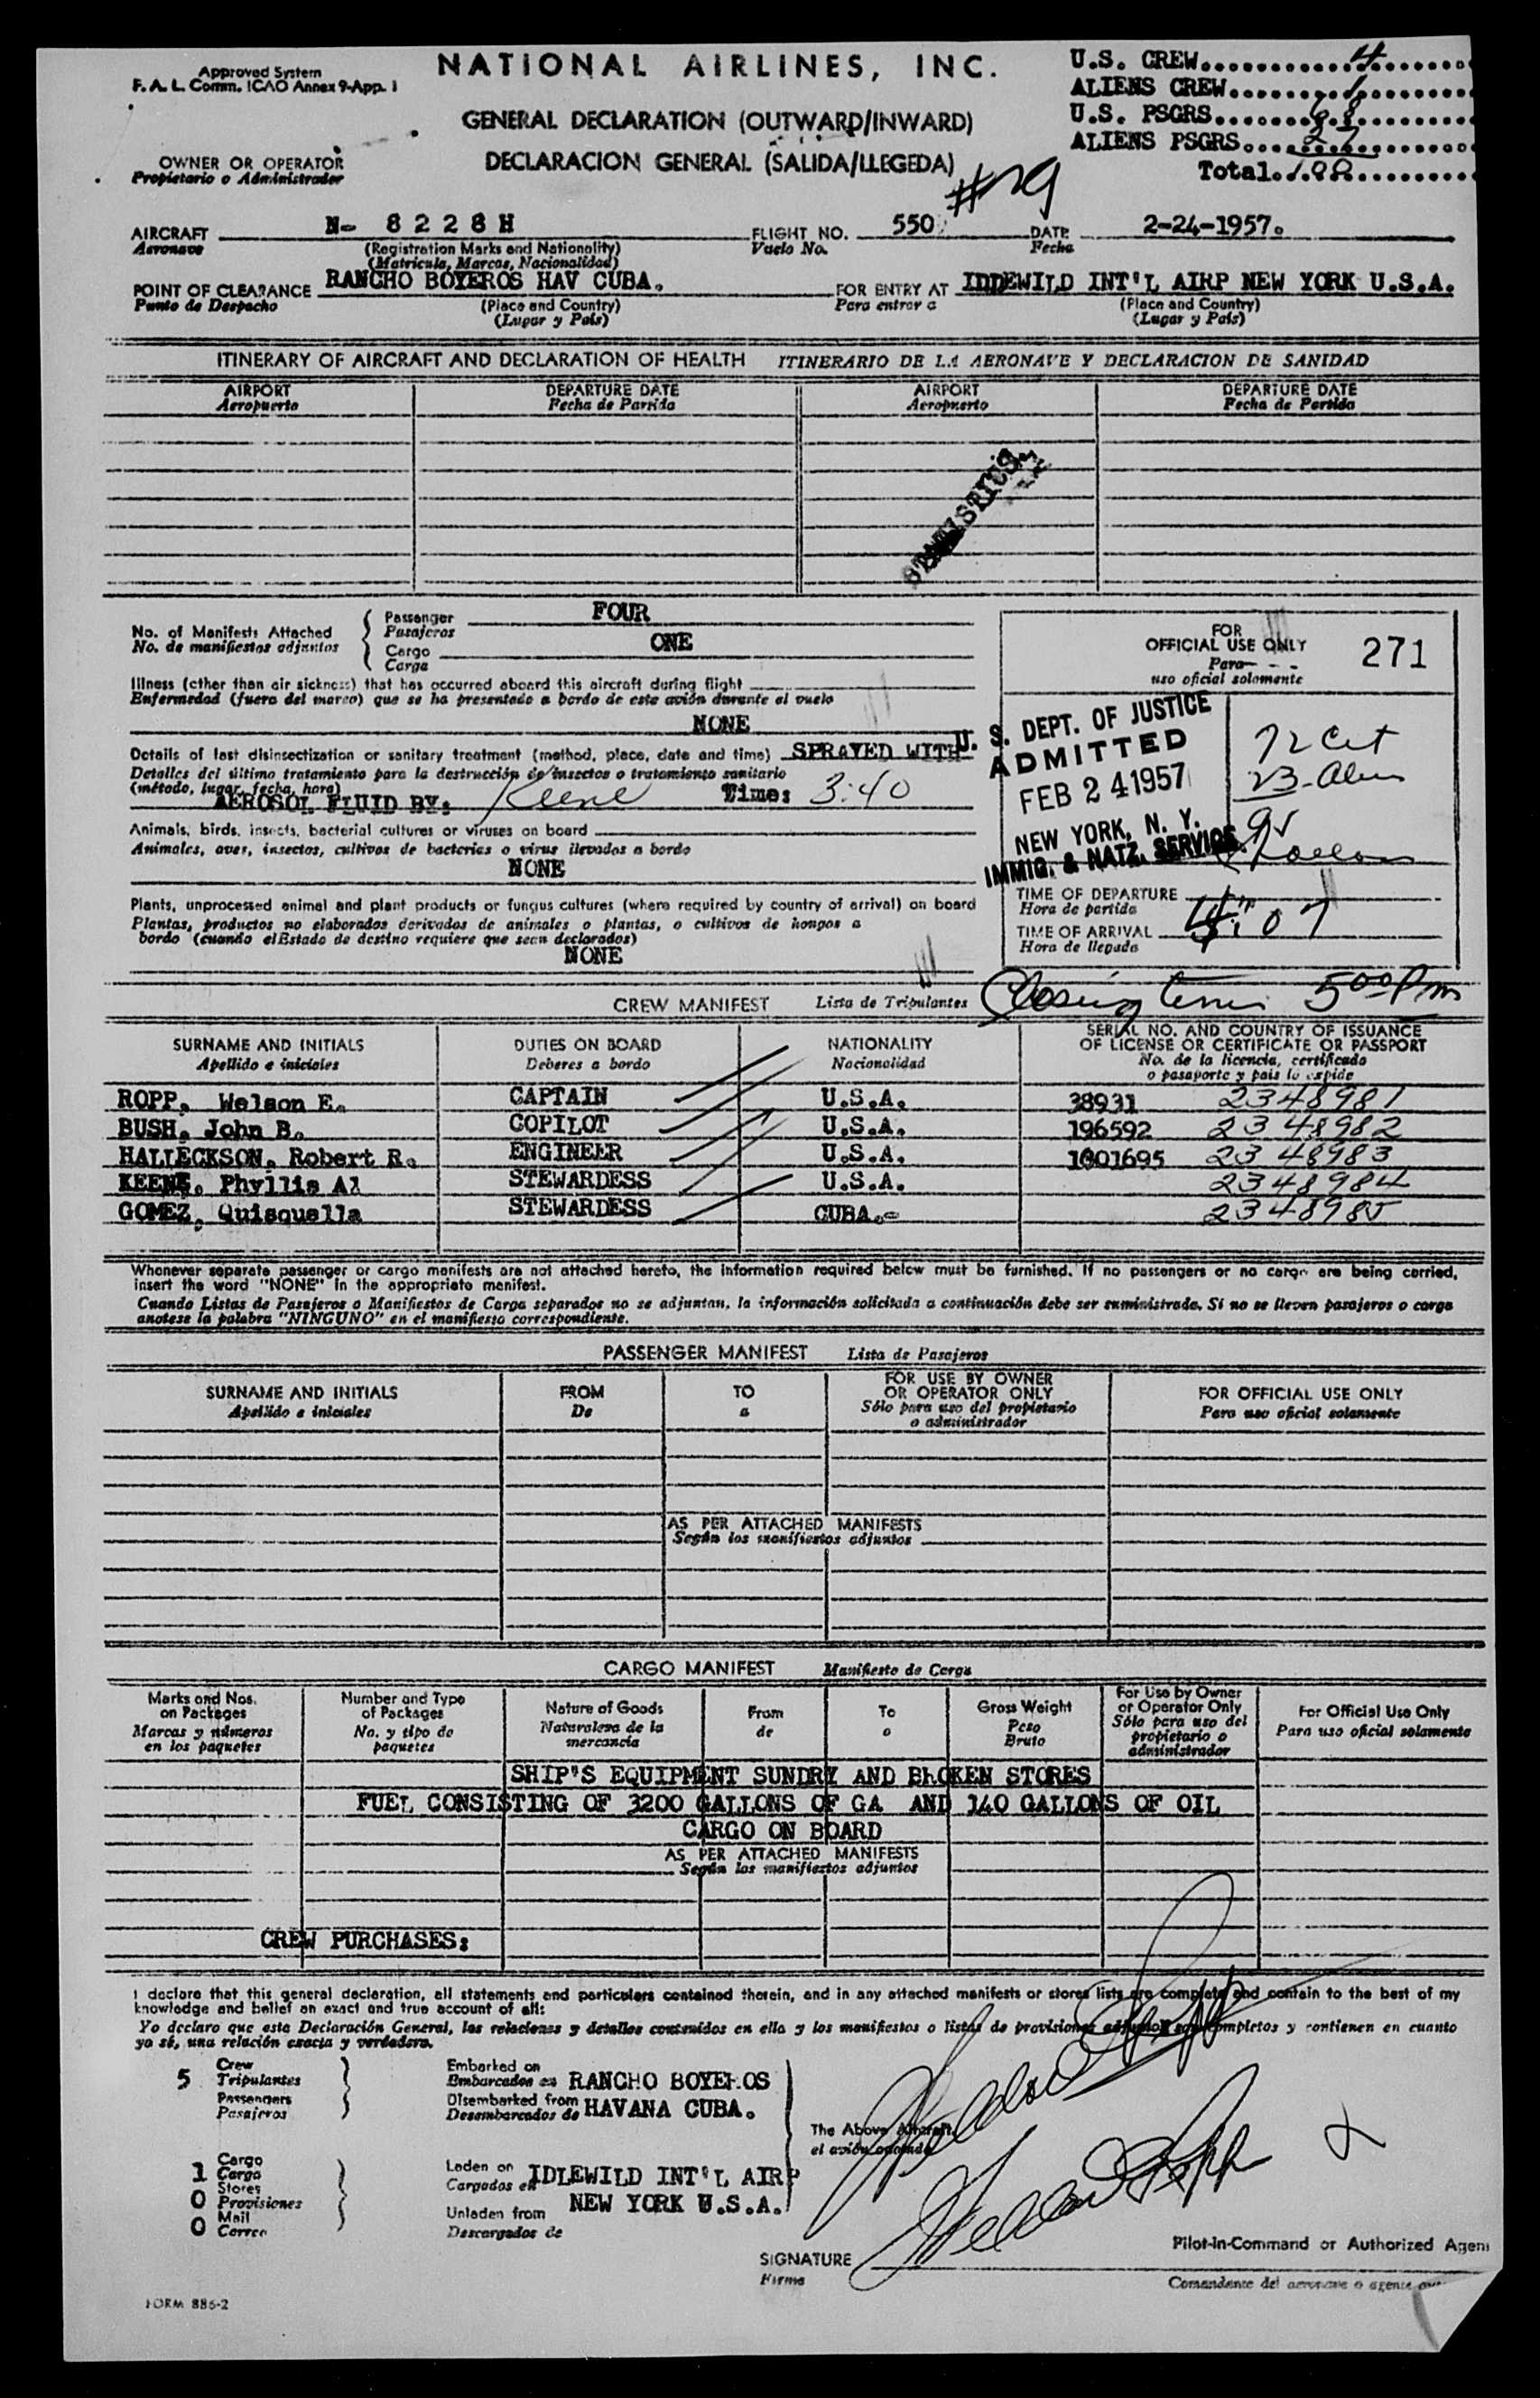 Approved System
F. A. L. Comm. ICAO Annex 9-App. 1
NATIONAL AIRLINES, INC.
GENERAL DECLARATION (OUTWARD/INWARD)
DECLARACION GENERAL (SALIDA/LLEGEDA)
U.S. CREW 4
ALIENS CREW 1
U.S. PSGRS 68
ALIENS PSGRS 27
Total 100
OWNER OR OPERATOR
Propietario o Administrador
#29
AIRCRAFT N- 8 2 2 8 H FLIGHT NO. 550 DATE 2-24-1957.
Aeronave (Registration Marks and Nationality) Vuelo No. Fecha
(Matricula, Marcas, Nacionalidad)
POINT OF CLEARANCE RANCHO BOYEROS HAV CUBA. FOR ENTRY AT IDDEWILD INT'L AIRP NEW YORK U.S.A.
Punto de Despacho (Place and Country) Para entrar a (Place and Country)
(Lugar y País) (Lugar y País)
ITINERARY OF AIRCRAFT AND DECLARATION OF HEALTH ITINERARIO DE LA AERONAVE Y DECLARACION DE SANIDAD
AIRPORT DEPARTURE DATE AIRPORT DEPARTURE DATE
Aeropuerto Fecha de Partida Aeropuerto Fecha de Partida
STATISTICS
No. of Manifests Attached Passenger FOUR
No. de manifiestos adjuntos Pasajeros
Cargo ONE
Carga
FOR
OFFICIAL USE ONLY 271
Para
uso oficial solamente
Illness (other than air sickness) that has occurred aboard this aircraft during flight
Enfermedad (fuera del mareo) que se ha presentado a bordo de este avión durante el vuelo
NONE
Details of last disinsectization or sanitary treatment (method, place, date and time) SPRAYED WITH
Detalles del último tratamiento para la destrucción de insectos o tratamiento sanitario
(método, lugar, fecha, hora)
AEROSOL FLUID BY: Keene Time: 3:40
U. S. DEPT. OF JUSTICE
ADMITTED
FEB 24 1957
NEW YORK, N. Y.
IMMIG. & NATZ. SERVICE
72 Cit
23-Alien
95
Animals, birds, insects, bacterial cultures or viruses on board
Animales, aves, insectos, cultivos de bacterias o virus llevados a bordo
NONE
Plants, unprocessed animal and plant products or fungus cultures (where required by country of arrival) on board
Plantas, productos no elaborados derivados de animales o plantas, o cultivos de hongos a
bordo (cuando el Estado de destino requiere que sean declarados)
NONE
TIME OF DEPARTURE
Hora de partida
TIME OF ARRIVAL 4:07
Hora de llegada
Closing time 5:00 Pm
CREW MANIFEST Lista de Tripulantes
SURNAME AND INITIALS DUTIES ON BOARD NATIONALITY SERIAL NO. AND COUNTRY OF ISSUANCE
OF LICENSE OR CERTIFICATE OR PASSPORT
Apellido e iniciales Deberes a bordo Nacionalidad No. de la licencia, certificado
o pasaporte y pais lo expide
ROPP, Welson E. CAPTAIN U.S.A. 38931 2348981
BUSH, John B. COPILOT U.S.A. 196592 2348982
HALLECKSON, Robert R. ENGINEER U.S.A. 1001695 2348983
KEENE, Phyllis Al STEWARDESS U.S.A. 2348984
GOMEZ, Quisquella STEWARDESS CUBA.- 2348985
Whenever separate passenger or cargo manifests are not attached hereto, the information required below must be furnished. If no passengers or no cargo are being carried,
insert the word "NONE" in the appropriate manifest.
Cuando Listas de Pasajeros o Manifiestos de Carga separados no se adjuntan, la información solicitada a continuación debe ser suministrada. Si no se lleven pasajeros o carga
anotese la palabra "NINGUNO" en el manifiesto correspondiente.
PASSENGER MANIFEST Lista de Pasajeros
SURNAME AND INITIALS FROM TO FOR USE BY OWNER
OR OPERATOR ONLY FOR OFFICIAL USE ONLY
Apellido e iniciales De a Sólo para uso del propietario
o administrador Para uso oficial solamente
AS PER ATTACHED MANIFESTS
Según los manifiestos adjuntos
CARGO MANIFEST Manifiesto de Carga
Marks and Nos.
on Packages
Marcas y números
en los paquetes
Number and Type
of Packages
No. y tipo de
paquetes
Nature of Goods
Naturaleza de la
mercancia
From
de
To
a
Gross Weight
Peso
Bruto
For Use by Owner
or Operator Only
Sólo para uso del
propietario o
administrador
For Official Use Only
Para uso oficial solamente
SHIP'S EQUIPMENT SUNDRY AND BROKEN STORES
FUEL CONSISTING OF 3200 GALLONS OF GA AND 140 GALLONS OF OIL
CARGO ON BOARD
AS PER ATTACHED MANIFESTS
Según los manifiestos adjuntos
CREW PURCHASES:
I declare that this general declaration, all statements and particulars contained therein, and in any attached manifests or stores lists are complete and contain to the best of my
knowledge and belief an exact and true account of all:
Yo declaro que esta Declaración General, las relaciones y detalles contenidos en ella y los manifiestos o listas de provisiones adjuntos son completos y contienen en cuanto
yo sé, una relación exacta y verdadera.
5 Crew
Tripulantes
Passengers
Pasajeros
Embarked on
Embarcados en RANCHO BOYEROS
Disembarked from
Desembarcados de HAVANA CUBA.
The Above Aircraft
el avión
1 Cargo
Carga
0 Stores
Provisiones
0 Mail
Correo
Laden on
Cargados en IDLEWILD INT'L AIRP
NEW YORK U.S.A.
Unladen from
Descargados de
SIGNATURE
Firma
Pilot-in-Command or Authorized Agent
Comandante del aeronave o agente
FORM 886-2